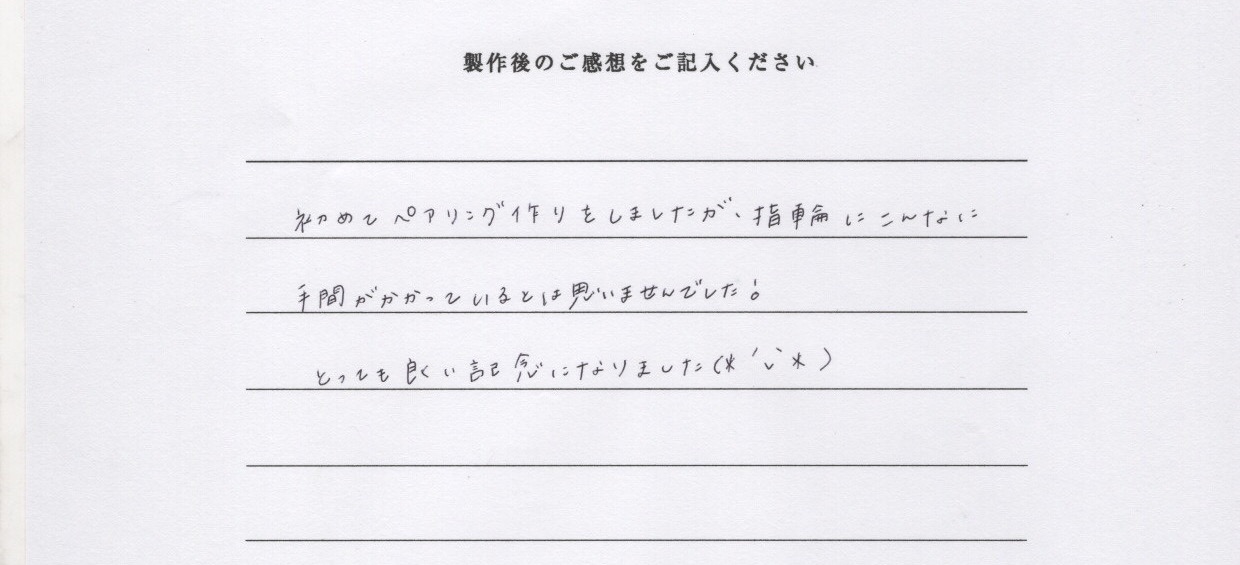 製作後のご感想をご記入ください
初めてペアリング作りをしましたが、指輪にこんなに
手間がかかっているとは思いませんでした!
とっても良い記念になりました(*´∨`*)